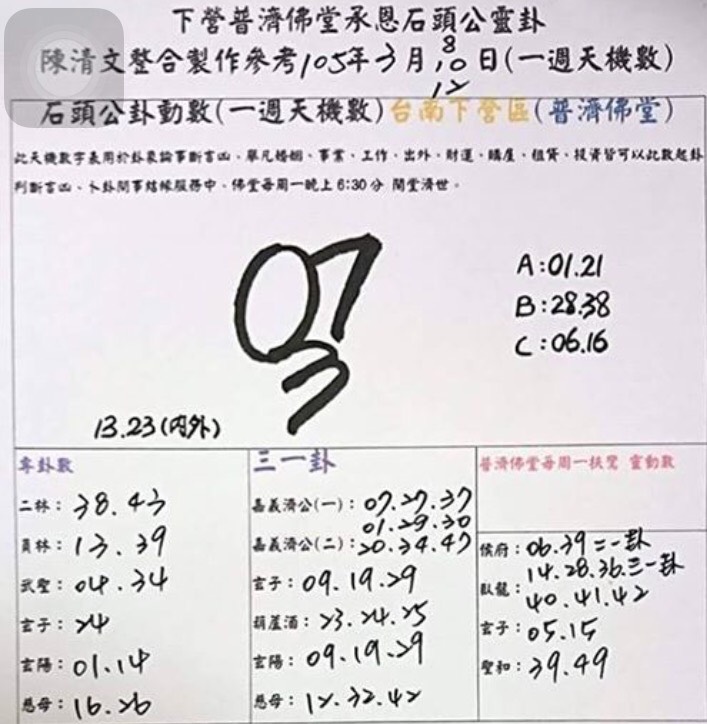 下營普濟佛堂承恩石頭公靈卦
陳清文整合製作參考105年3月8.10.12日(一週天機數)
石頭公卦動數(一週天機數)台南下營區(普濟佛堂)
此天機數字表用於卦象論事斷吉凶、舉凡婚姻、事業、工作、出外、財運、購屋、租賃、投資皆可以此數起卦
判斷吉凶、卜卦問事結緣服務中、佛堂每周一晚上6:30分 開堂濟世。
07
A:01.21
B:28.38
C:06.16
13.23(內外)
專卦數
二林:38.43
員林:13.39
武聖:04.34
玄子:24
玄陽:01.14
慈母:16.26
三一卦
嘉義濟公(一):07.27.37
01.29.30
嘉義濟公(二):20.34.47
玄子:09.19.29
葫蘆酒:23.24.25
玄陽:09.19.29
慈母:12.32.42
普濟佛堂每周一扶鸞 靈動數
侯府:06.39二一卦
14.28.36.三一卦
臥龍:40.41.42
玄子:05.15
聖和:39.49